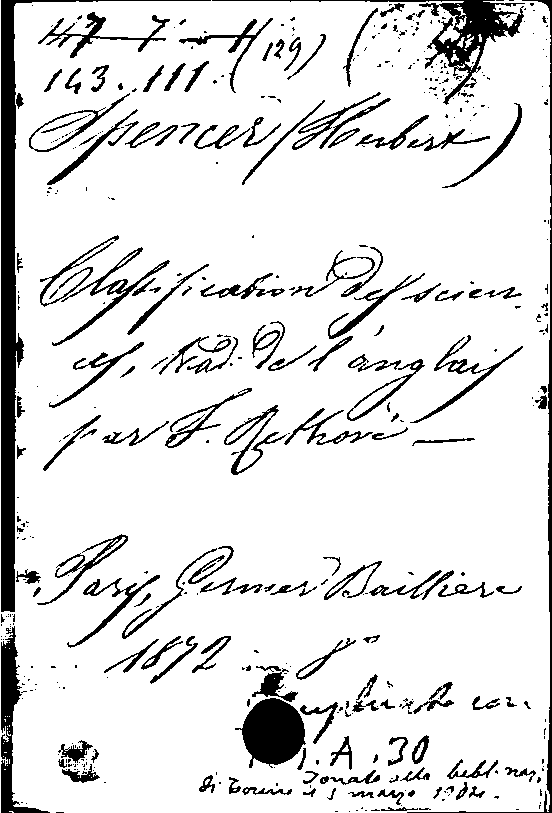 47 7 - 11 (129) (
143.111.
Spencer (Herbert)
Classification des scien-
ces, trad. de l'anglais
par F. Réthoré —
Paris, Germer Baillière
1872 in 8º
Duplicato con
.A.30
Donato alla bibl. naz.
di Torino il 5 marzo 1902.